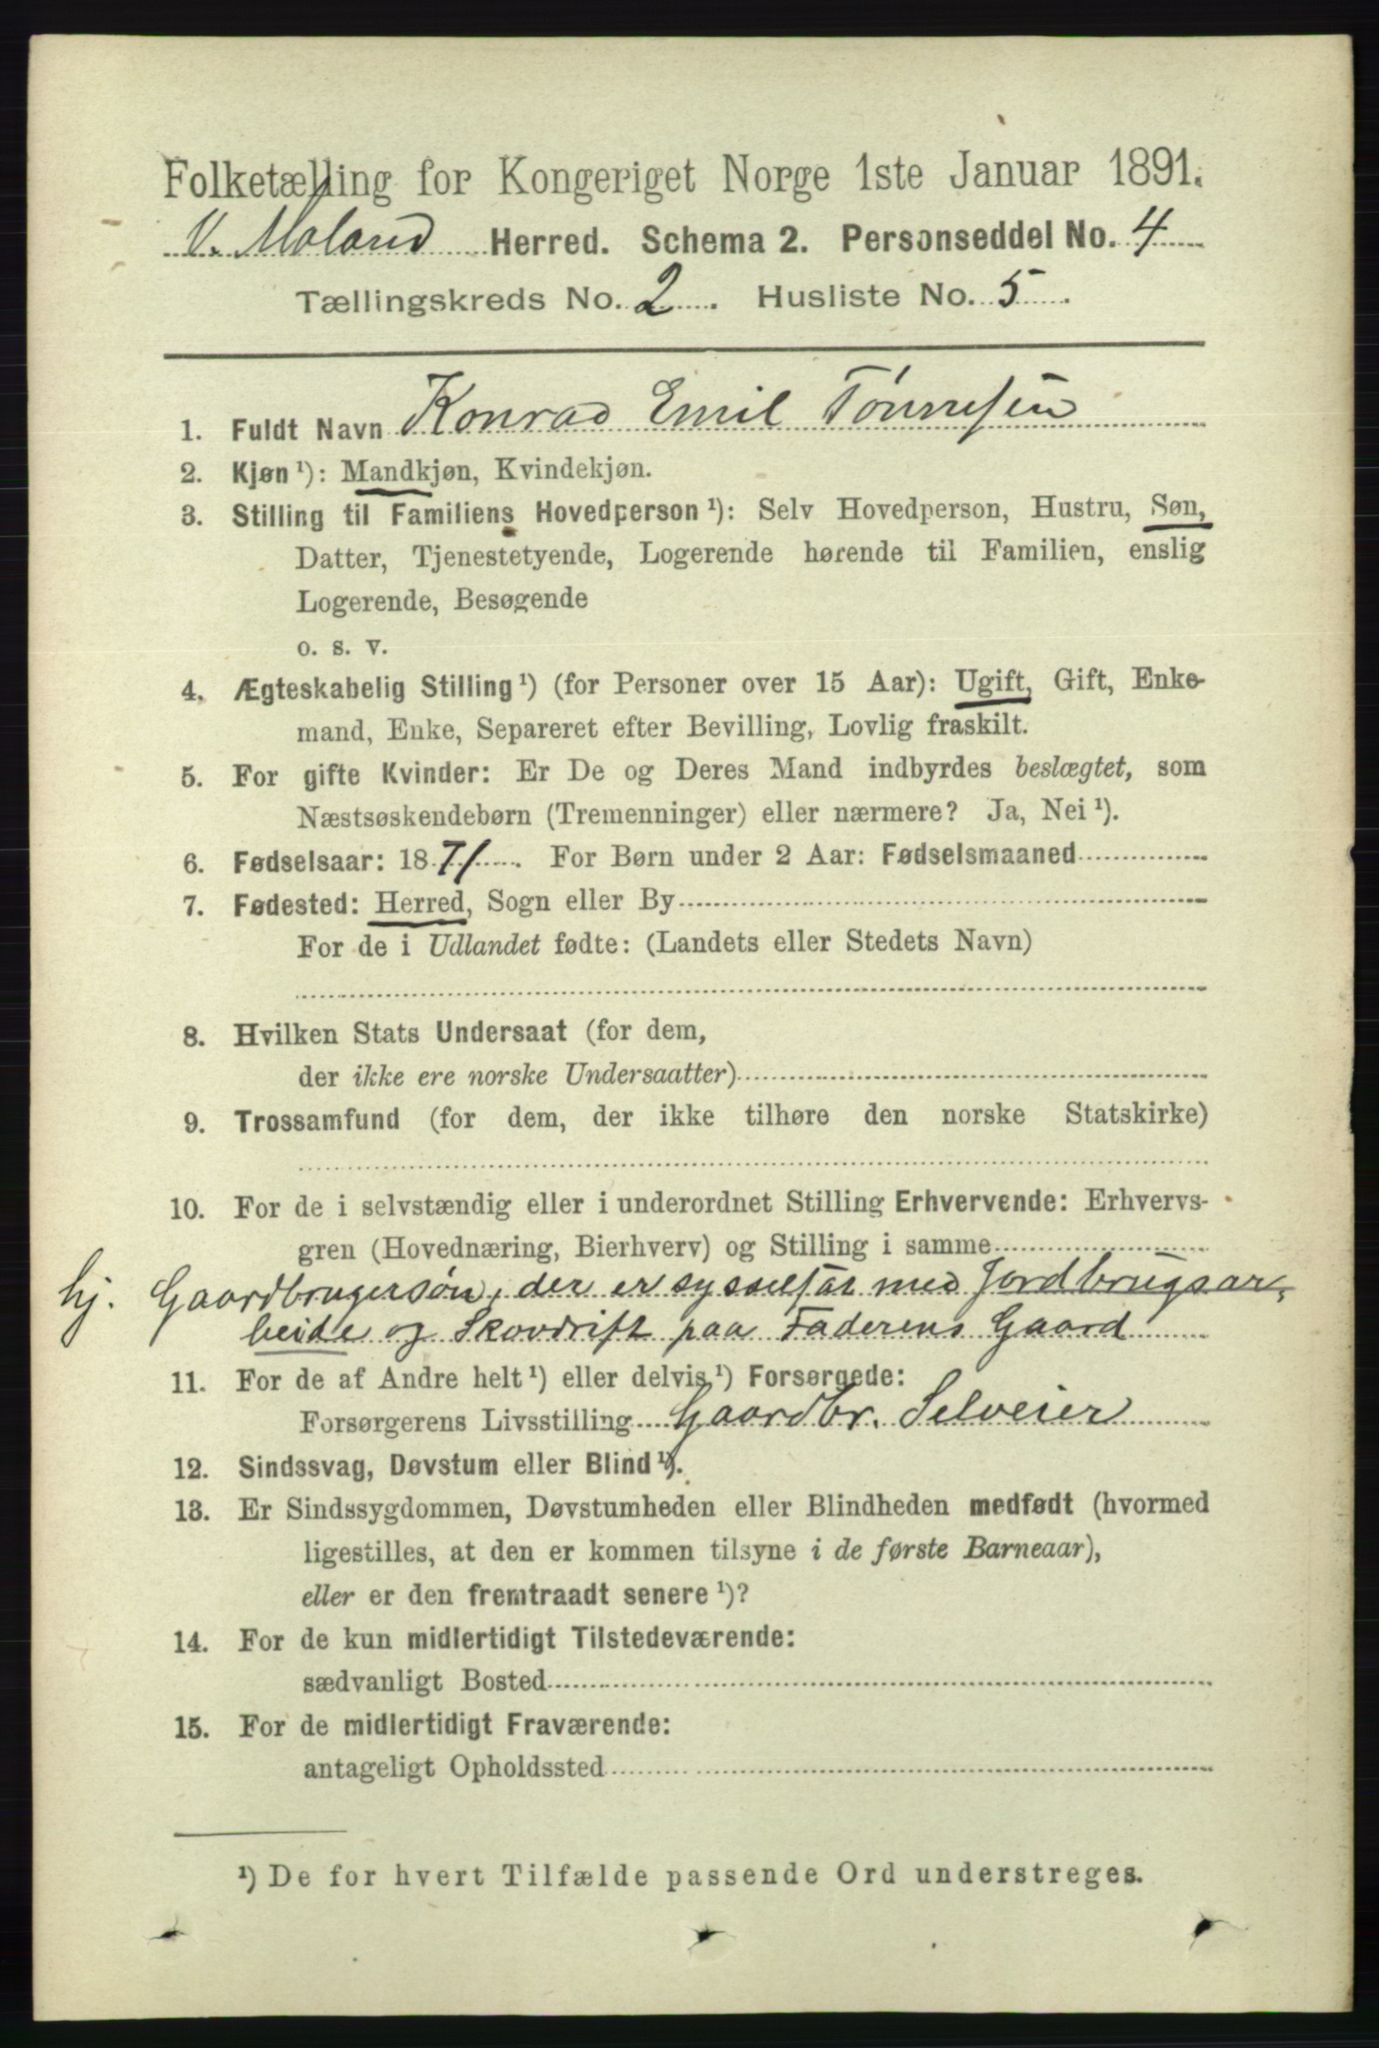 Folketælling for Kongeriget Norge 1ste Januar 1891.
V. Moland Herred. Schema 2. Personseddel No. 4
Tællingskreds No. 2. Husliste No. 5.
1. Fuldt Navn Konrad Emil Tønnesen
2. Kjøn ¹): Mandkjøn, Kvindekjøn.
3. Stilling til Familiens Hovedperson ¹): Selv Hovedperson, Hustru, Søn,
Datter, Tjenestetyende, Logerende hørende til Familien, enslig
Logerende, Besøgende
o. s. v.
4. Ægteskabelig Stilling ¹) (for Personer over 15 Aar): Ugift, Gift, Enke-
mand, Enke, Separeret efter Bevilling, Lovlig fraskilt.
5. For gifte Kvinder: Er De og Deres Mand indbyrdes beslægtet, som
Næstsøskendebørn (Tremenninger) eller nærmere? Ja, Nei ¹).
6. Fødselsaar: 1871. For Børn under 2 Aar: Fødselsmaaned
7. Fødested: Herred, Sogn eller By
For de i Udlandet fødte: (Landets eller Stedets Navn)
8. Hvilken Stats Undersaat (for dem,
der ikke ere norske Undersaatter)
9. Trossamfund (for dem, der ikke tilhøre den norske Statskirke)
10. For de i selvstændig eller i underordnet Stilling Erhvervende: Erhvervs-
gren (Hovednæring, Bierhverv) og Stilling i samme
hj. Gaardbrugersøn, der er sysselsat med Jordbrugsar-
beide og Skovdrift paa Faderens Gaard
11. For de af Andre helt ¹) eller delvis ¹) Forsørgede:
Forsørgerens Livsstilling Gaardbr. Selveier
12. Sindssvag, Døvstum eller Blind ¹).
13. Er Sindssygdommen, Døvstumheden eller Blindheden medfødt (hvormed
ligestilles, at den er kommen tilsyne i de første Barneaar),
eller er den fremtraadt senere ¹)?
14. For de kun midlertidigt Tilstedeværende:
sædvanligt Bosted
15. For de midlertidigt Fraværende:
antageligt Opholdssted
¹) De for hvert Tilfælde passende Ord understreges.